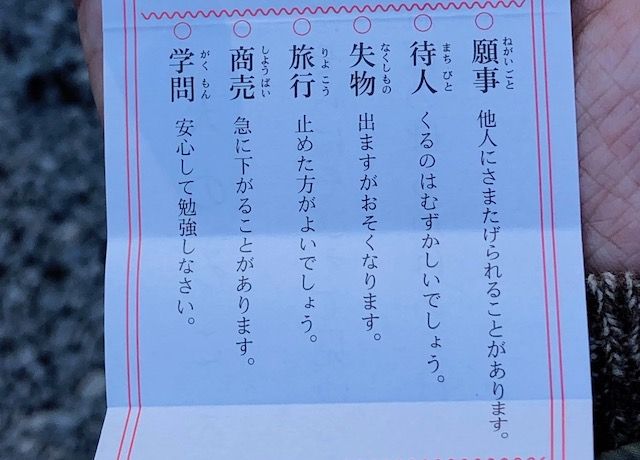 ○願事 他人にさまたげられることがあります。
○待人 くるのはむずかしいでしょう。
○失物 出ますがおそくなります。
○旅行 止めた方がよいでしょう。
○商売 急に下がることがあります。
○学問 安心して勉強しなさい。
ねがいごと
まちびと
なくしもの
りょこう
しようばい
がくもん